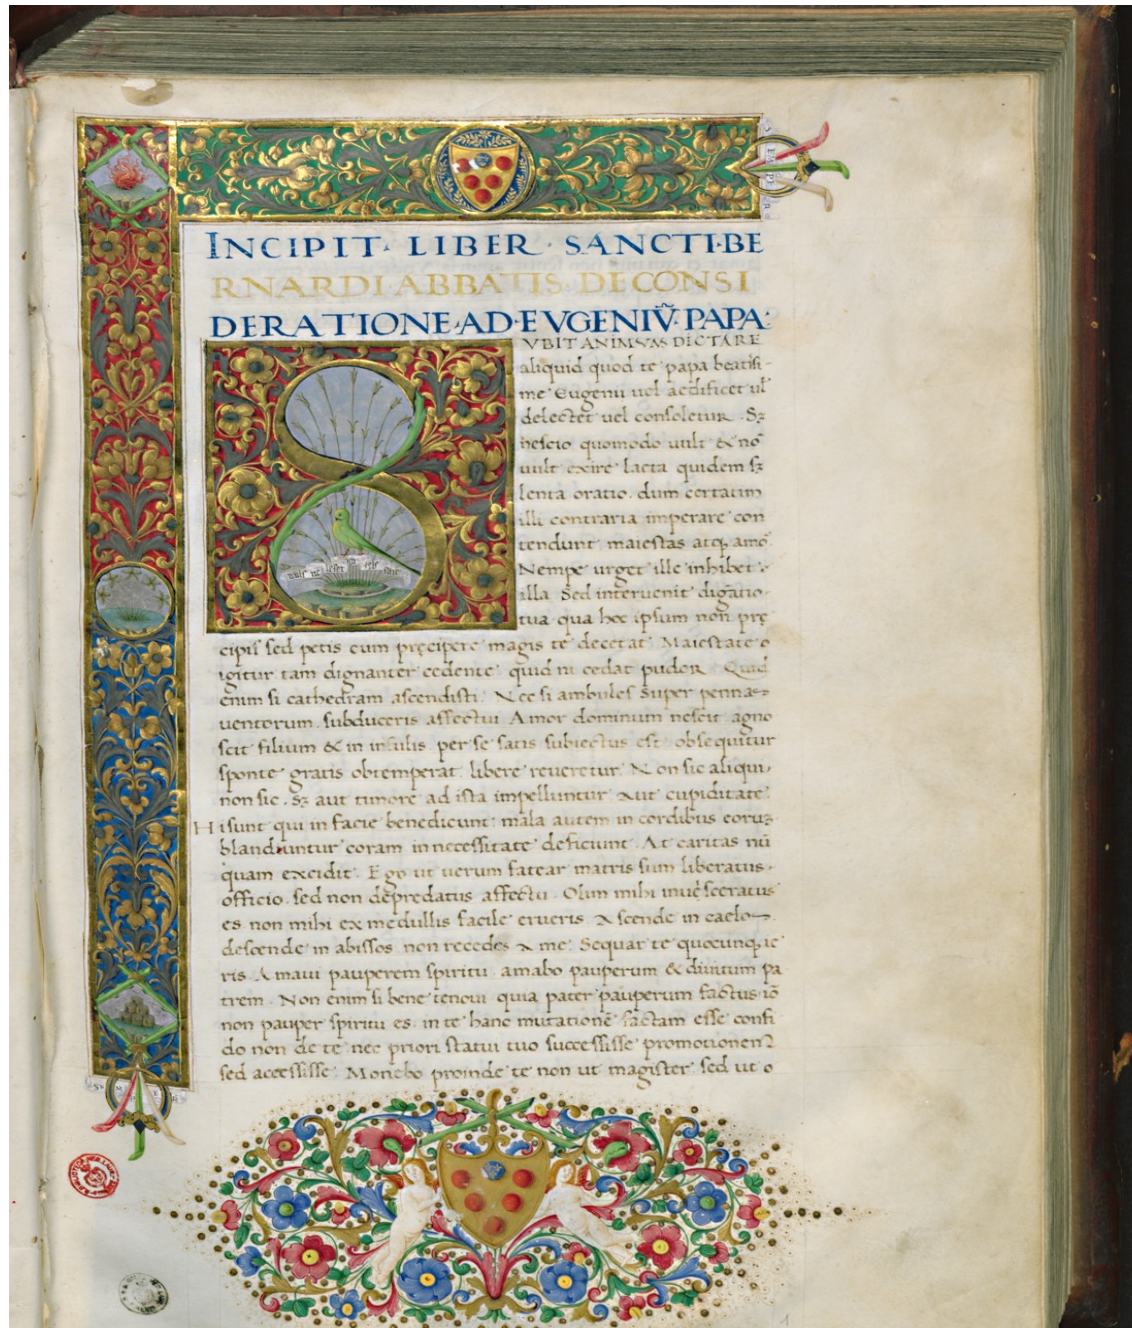 INCIPIT · LIBER · SANCTI·BE
RNARDI ABBATIS·DE CONSI
DERATIONE·AD·EVGENIV̄·PAPĀ·
VBIT ANIMVM DICTARE
aliquid quod te papa beatiſſi-
me Eugeni uel aedificet ul̄
delectet uel conſoletur. Sꝫ
neſcio quomodo uult & nō
uult exire laeta quidem ſꝫ
lenta oratio. dum certatim
illi contraria imperare con
tendunt maieſtas atq; amor̄
Nempe urget ille inhibet
illa. Sed interuenit dignatio
tua qua hoc ipſum non prę
cipiſ ſed petis cum pręcipere magis te deceat. Maieſtate
igitur tam dignanter cedente quid ni cedat pudor. Quid
enim ſi cathedram aſcendiſti. Nec ſi ambuleſ ſuper pennas
uentorum. ſubduceris affectui. Amor dominum neſcit. agno
ſcit filium & in inſulis. per ſe ſatis ſubiectus eſt. obſequitur
ſponte gratis obtemperat. libere reueretur. Non ſic aliqui.
non ſic. ſꝫ aut timore ad iſta impelluntur. Aut cupiditate.
Hi ſunt qui in facie benedicunt: mala autem in cordibus eoruꝫ
blandiuntur coram in neceſſitate deficiunt. At caritas nū
quam excidit. Ego ut uerum fatear matris ſum liberatus
officio. ſed non depredatus affectu. Olim mihi inuiſceratus
es non mihi ex medullis facile erueris. Aſcende in caelos.
deſcende in abiſſos. non recedes a me. Sequar te quocunq; ie
ris. Amaui pauperem ſpiritu. amabo pauperum & diuitum pa
trem. Non enim ſi bene te noui quia pater pauperum factus iō
non pauper ſpiritu es. in te hanc mutationē factam eſſe confi
do non de te nec priori ſtatui tuo ſucceſſiſſe promotionem
sed acceſſiſſe. Monebo proinde te non ut magiſter ſed ut